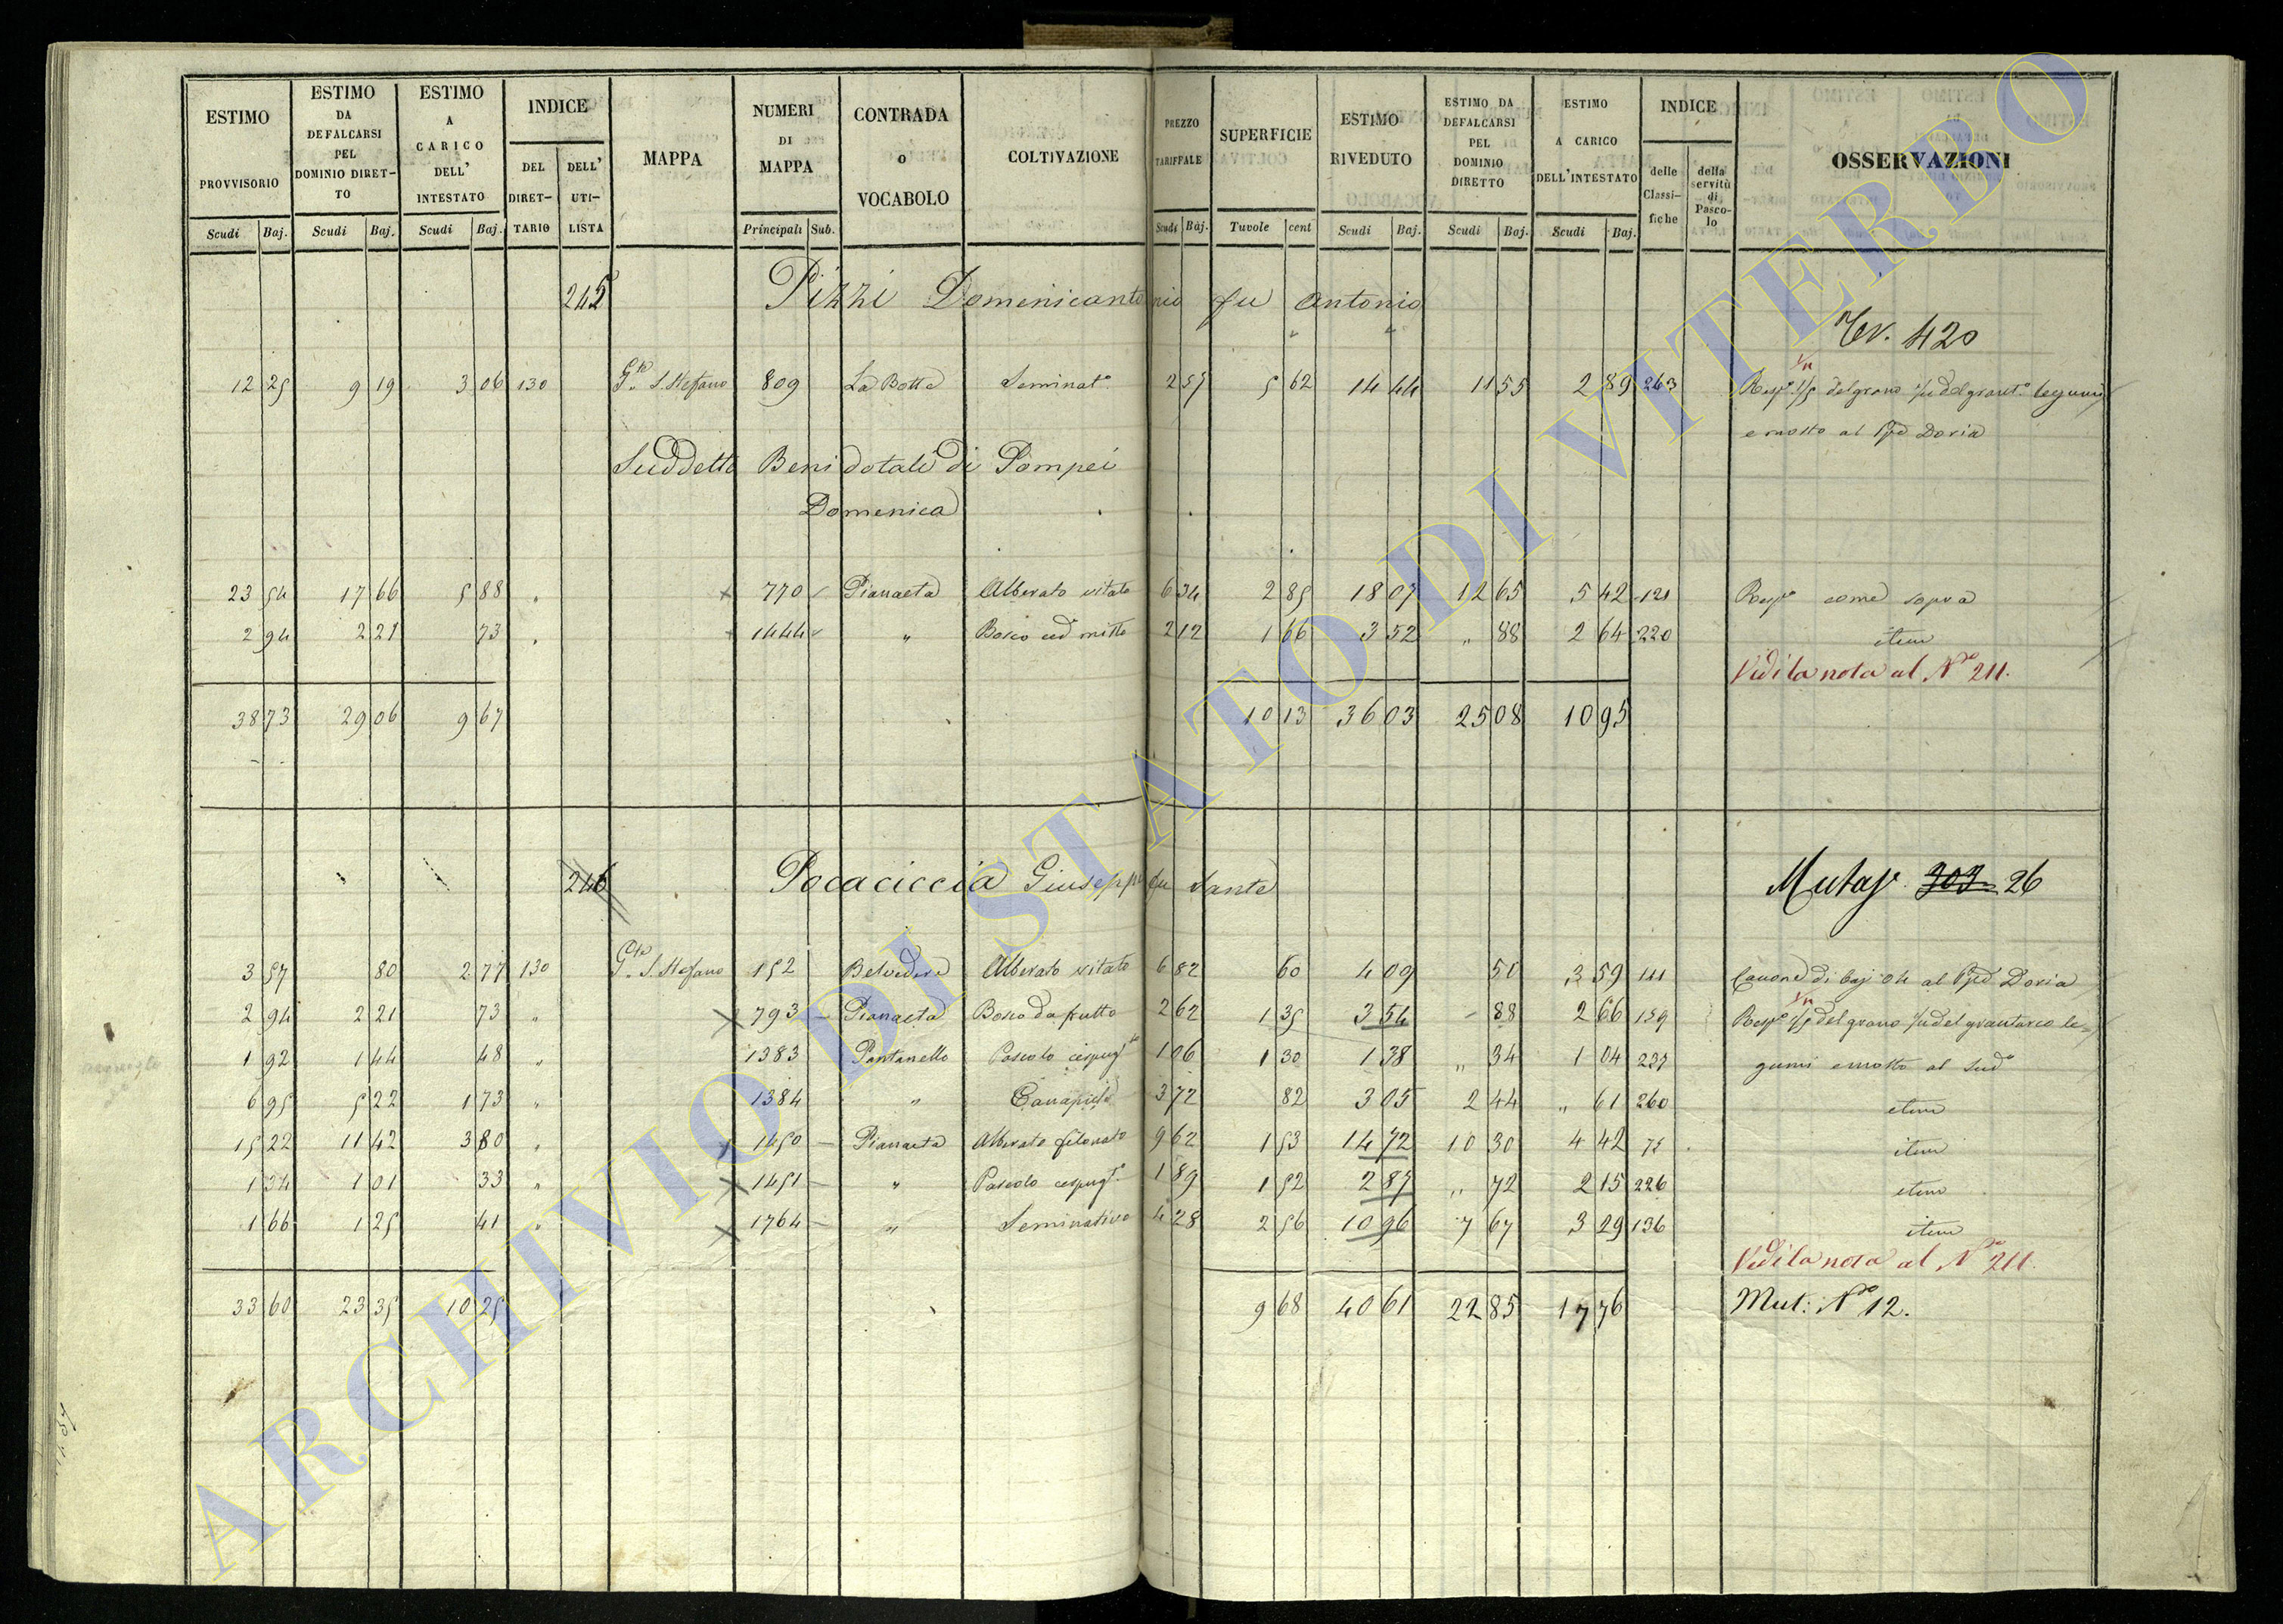 ESTIMO PROVVISORIO Scudi Baj.
ESTIMO DA DEFALCARSI PEL DOMINIO DIRET-TO Scudi Baj.
ESTIMO A CARICO DELL' INTESTATO Scudi Baj.
INDICE DEL DIRET-TARIO DELL' UTI-LISTA
MAPPA
NUMERI DI MAPPA Principali Sub.
CONTRADA o VOCABOLO
COLTIVAZIONE
PREZZO TARIFFALE Scudi Baj.
SUPERFICIE Tavole cent
ESTIMO RIVEDUTO Scudi Baj.
ESTIMO DA DEFALCARSI PEL DOMINIO DIRETTO Scudi Baj.
ESTIMO A CARICO DELL'INTESTATO Scudi Baj.
INDICE delle Classi-fiche della servitù di Pasco-lo
OSSERVAZIONI
245 Pizzi Domenicantonio fu Antonio
420
12 25 9 19 3 06 130 S. Stefano 809 La Botte Seminat.o 2 57 5 62 14 44 11 55 2 89 263 del grano legumi
e mosto al Doria
Suddetto Beni dotali di Pompei
Domenica
23 54 17 66 5 88 " 770 Pianaeta Alberato vitato 6 34 2 85 18 07 12 65 5 42 121 come sopra
2 94 2 21 73 " 1444 " Bosco ced misto 2 12 1 66 3 52 " 88 2 64 220 item
Vedi la nota al N.o 211.
38 73 29 06 9 67 10 13 36 03 25 08 10 95
246 Pocaciccia Giuseppe fu Sante
303 26
3 57 80 2 77 130 S. Stefano 152 Belvedere Alberato vitato 6 82 60 4 09 50 3 59 111 Canone di Baj 04 al Doria
2 94 2 21 73 " 793 Pianaeta Bosco da frutto 2 62 1 35 3 54 - 88 2 66 159 del grano del grantorco le-
1 92 1 44 48 " 1383 Pantanello Pascolo cespug.to 1 06 1 30 1 38 " 34 1 04 237 gumi e mosto al Sud.o
6 95 5 22 1 73 " 1384 " Canapule 3 72 82 3 05 2 44 " 61 260 item
15 22 11 42 3 80 " 1450 Pianaeta Alberato filonato 9 62 1 53 14 72 10 30 4 42 75 item
1 34 1 01 33 " 1451 " Pascolo cespug.to 1 89 1 52 2 87 " 72 2 15 226 item
1 66 1 25 41 " 1764 " Seminativo 4 28 2 56 10 96 7 67 3 29 136 item
Vedi la nota al N.o 211.
33 60 23 35 10 25 9 68 40 61 22 85 17 76 Mut: N.o 12.
ARCHIVIO DI STATO DI VITERBO